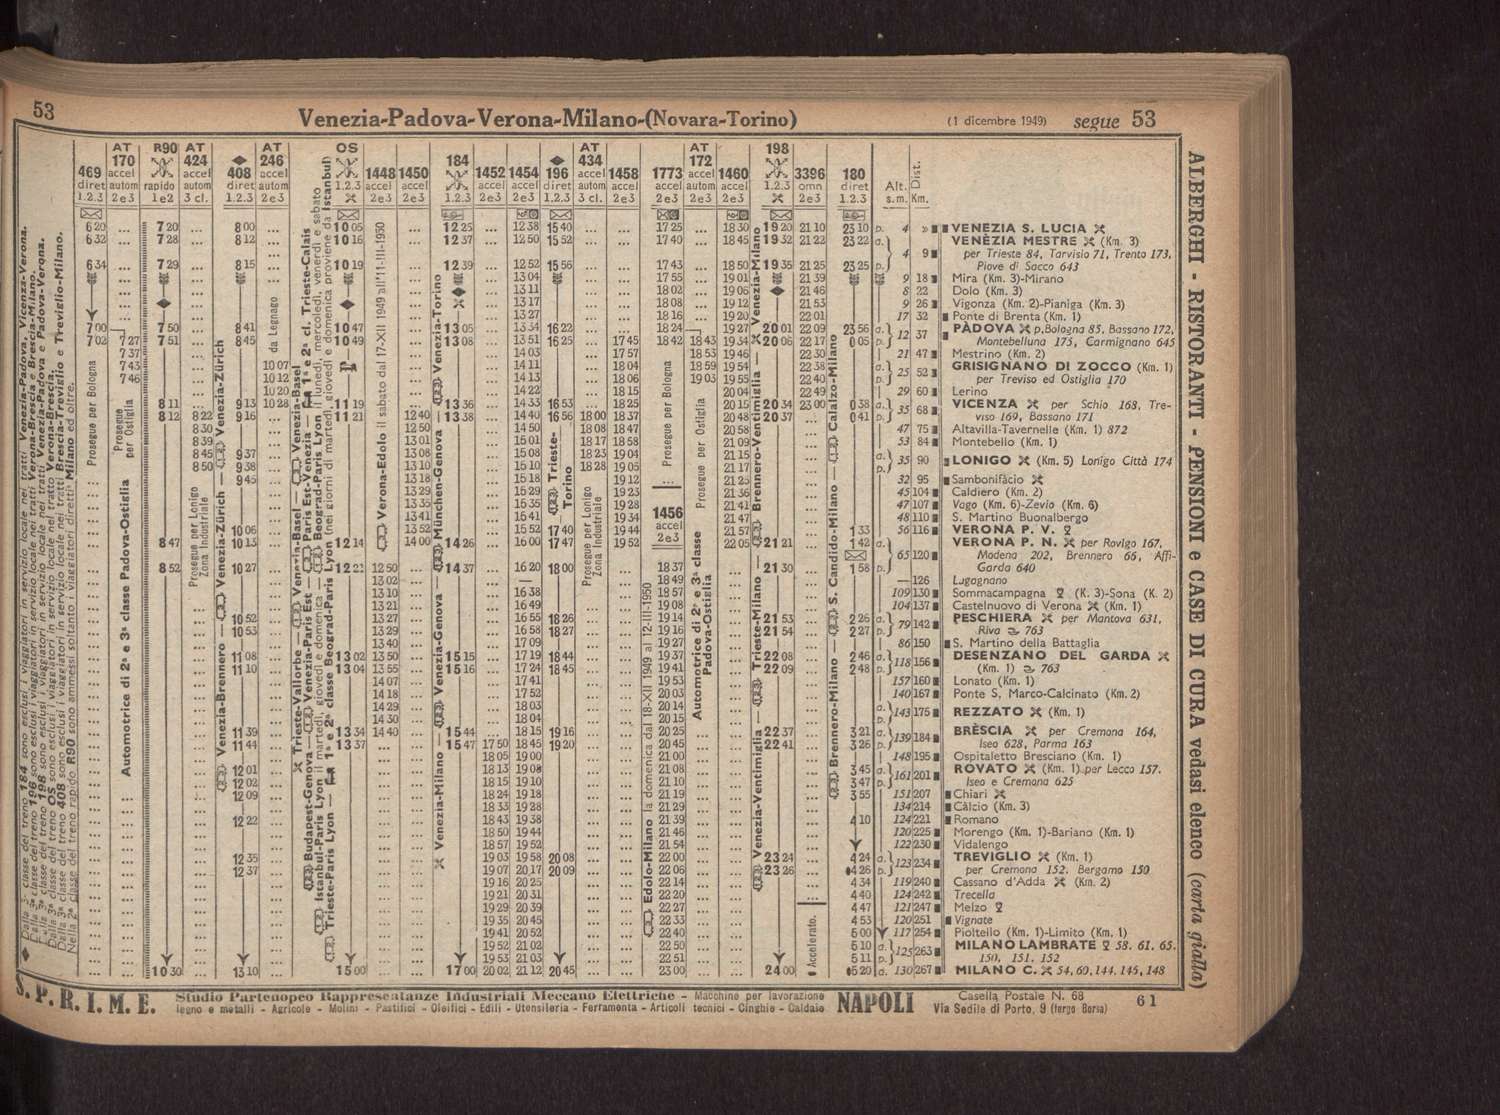 53
Venezia-Padova-Verona-Milano-(Novara-Torino)
(1 dicembre 1949)
segue 53
469 diret 1.2.3
AT 170 accel autom 2e3
R90 rapido 1e2
AT 424 accel autom 3 cl.
408 diret 1.2.3
AT 246 accel autom 2e3
OS 1.2.3
1448 accel 2e3
1450 accel 2e3
184 1.2.3
1452 accel 2e3
1454 accel 2e3
196 diret 1.2.3
AT 434 accel autom 3 cl.
1458 accel 2e3
1773 accel 2e3
AT 172 accel autom 2e3
1460 accel 2e3
198 1.2.3
3396 omn 2e3
180 diret 1.2.3
Alt. s.m.
Dist. Km.
6 20 ... 7 20 ... 8 00 ... 10 05 12 25 ... 12 38 15 40 ... 17 25 ... 18 30 19 20 21 10 23 10 p. 4 » VENEZIA S. LUCIA
6 32 ... 7 28 ... 8 12 ... 10 16 12 37 ... 12 50 15 52 ... 17 40 ... 18 45 19 32 21 22 23 22 a. VENÈZIA MESTRE (Km. 3)
4 9 per Trieste 84, Tarvisio 71, Trento 173,
6 34 ... 7 29 ... 8 15 ... 10 19 12 39 ... 12 52 15 56 ... 17 43 ... 18 50 19 35 21 25 23 25 p. Piove di Sacco 643
13 04 17 55 19 01 21 39 9 18 Mira (Km. 3)-Mirano
13 11 18 02 19 06 21 46 8 22 Dolo (Km. 3)
13 17 18 08 19 12 21 53 9 26 Vigonza (Km. 2)-Pianiga (Km. 3)
13 27 18 16 19 20 22 01 17 32 Ponte di Brenta (Km. 1)
7 00 7 50 8 41 10 47 13 05 13 34 16 22 18 24 19 27 20 01 22 09 23 56 a. 12 37 PÀDOVA p. Bologna 85, Bassano 172,
7 02 7 27 7 51 8 45 10 49 13 08 13 51 16 25 17 45 18 42 18 43 19 34 20 06 22 17 0 05 p. Montebelluna 175, Carmignano 645
7 37 14 03 17 57 18 53 19 46 22 30 21 47 Mestrino (Km. 2)
7 43 10 07 14 11 18 04 18 59 19 54 22 38 a. 25 52 GRISIGNANO DI ZOCCO (Km. 1)
7 46 10 12 14 13 18 06 19 03 19 55 22 40 p. per Treviso ed Ostiglia 170
10 20 14 22 18 15 20 04 22 49 29 60 Lerino
8 11 9 13 10 28 11 19 13 36 14 33 16 53 18 25 20 15 20 34 23 00 0 38 a. 35 68 VICENZA per Schio 168, Tre-
8 12 8 22 9 16 11 21 12 40 13 38 14 40 16 56 18 00 18 37 20 48 20 37 0 41 p. viso 169, Bassano 171
8 30 12 50 14 50 18 08 18 47 20 58 47 75 Altavilla-Tavernelle (Km. 1) 872
8 39 13 01 15 01 18 17 18 58 21 09 53 84 Montebello (Km. 1)
8 45 9 37 13 08 15 08 18 23 19 04 21 15 a. 35 90 LONIGO (Km. 5) Lonigo Città 174
8 50 9 38 13 10 15 10 18 28 19 05 21 17 p.
9 45 13 18 15 18 19 12 21 25 32 95 Sambonifàcio
13 29 15 29 19 23 21 36 45 104 Caldiero (Km. 2)
13 35 15 35 19 28 21 41 47 107 Vago (Km. 6)-Zevio (Km. 6)
13 41 15 41 19 34 21 47 48 110 S. Martino Buonalbergo
10 06 13 52 15 52 17 40 19 44 21 57 1 33 56 116 VERONA P. V.
8 47 10 13 12 14 14 00 14 26 16 00 17 47 19 52 22 05 21 21 1 42 a. 65 120 VERONA P. N. per Rovigo 167,
Modena 202, Brennero 66, Affi-
1456 accel 2e3
8 52 10 27 12 21 12 50 14 37 16 20 18 00 18 37 21 30 1 58 p. Garda 640
13 02 — 18 49 — 126 Lugagnano
13 10 16 38 18 57 109 130 Sommacampagna (K. 3)-Sona (K. 2)
13 21 16 49 19 08 104 137 Castelnuovo di Verona (Km. 1)
10 52 13 27 16 55 18 26 19 14 21 53 2 26 a. 79 142 PESCHIERA per Mantova 631,
10 53 13 29 16 58 18 27 19 16 21 54 2 27 p. Riva 763
13 40 17 09 19 27 86 150 S. Martino della Battaglia
11 08 13 02 13 50 15 15 17 19 18 44 19 37 22 08 2 46 a. 118 156 DESENZANO DEL GARDA
11 10 13 04 13 55 15 16 17 24 18 45 19 41 22 09 2 48 p. (Km. 1) 763
14 07 17 41 19 53 157 160 Lonato (Km. 1)
14 18 17 52 20 03 140 167 Ponte S. Marco-Calcinato (Km. 2)
14 29 18 03 20 14 a. 143 175 REZZATO (Km. 1)
14 30 18 04 20 15 p.
11 39 13 34 14 40 15 44 18 15 19 16 20 25 22 37 3 21 a. 139 184 BRÈSCIA per Cremona 164,
11 44 13 37 15 47 17 50 18 45 19 20 20 45 22 41 3 26 p. Iseo 628, Parma 163
18 05 19 00 21 00 148 195 Ospitaletto Bresciano (Km. 1)
12 01 18 13 19 08 21 08 3 45 a. 161 201 ROVATO (Km. 1) per Lecco 157.
12 02 18 15 19 10 21 10 3 47 p. Iseo e Cremona 625
12 09 18 24 19 18 21 19 3 55 151 207 Chiari
18 33 19 28 21 29 134 214 Càlcio (Km. 3)
12 22 18 43 19 38 21 39 4 10 124 221 Romano
18 50 19 44 21 46 120 225 Morengo (Km. 1)-Bariano (Km. 1)
18 57 19 52 21 54 122 230 Vidalengo
12 35 19 03 19 58 20 08 22 00 23 24 4 24 a. 123 234 TREVIGLIO (Km. 1)
12 37 19 07 20 17 20 09 22 06 23 26 4 26 p. per Cremona 152, Bergamo 150
19 16 20 25 22 14 4 34 119 240 Cassano d'Adda (Km. 2)
19 21 20 31 22 20 4 40 124 242 Trecella
19 29 20 39 22 27 4 47 121 247 Melzo
19 35 20 45 22 33 4 53 120 251 Vignate
19 41 20 52 22 40 5 00 117 254 Pioltello (Km. 1)-Limito (Km. 1)
19 52 21 02 22 50 5 10 a. 125 263 MILANO LAMBRATE 58. 61. 65.
19 53 21 03 22 51 5 11 p. 150, 151, 152
10 30 13 10 15 00 17 00 20 02 21 12 20 45 23 00 24 00 5 20 a. 130 267 MILANO C. 54, 60, 144, 145, 148
Prosegue per Bologna
Prosegue per Ostiglia
Automotrice di 2ª e 3ª classe Padova-Ostiglia
Prosegue per Lonigo Zona Industriale
Venezia-Brennero — Venezia-Zürich — Venezia-Zürich
da Legnago
Trieste-Vallorbe — Venezia-Basel — Venezia-Basel
Budapest-Genova — Venezia-Paris Est — Paris Est-Venezia 1ª e 2ª cl. Trieste-Calais
Istanbul-Paris Lyon il martedì, giovedì e domenica — Beograd-Paris Lyon il lunedì, mercoledì, venerdì e sabato
Trieste-Paris Lyon — 1ª e 2ª classe Beograd-Paris Lyon (nei giorni di martedì, giovedì e domenica proviene da Istanbul)
Verona-Edolo il sabato dal 17-XII 1949 all'11-III-1950
Venezia-Milano — Venezia-Genova — München-Genova — Venezia-Torino
Trieste-Torino
Prosegue per Lonigo Zona Industriale
Edolo-Milano la domenica dal 18-XII 1949 al 12-III-1950
Prosegue per Bologna
Automotrice di 2ª e 3ª classe Padova-Ostiglia
Prosegue per Ostiglia
Venezia-Ventimiglia — Trieste-Milano — Brennero-Ventimiglia — Venezia-Milano
Accelerato.
Brennero-Milano — S. Candido-Milano — Calalzo-Milano
Dalla 3ª classe del treno 184 sono esclusi i viaggiatori in servizio locale nei tratti Venezia-Padova, Vicenza-Verona.
Dalla 3ª classe del treno 196 sono esclusi i viaggiatori in servizio locale nei tratti Verona-Brescia e Brescia-Milano.
Dalla 3ª classe del treno 198 sono esclusi i viaggiatori in servizio locale nei tratti Venezia-Padova e Padova-Verona.
Dalla 3ª classe del treno OS sono esclusi i viaggiatori in servizio locale nel tratto Verona-Brescia.
Dalla 3ª classe del treno 408 sono esclusi i viaggiatori in servizio locale nei tratti Brescia-Treviglio e Treviglio-Milano.
Nella 2ª classe del treno rapido R90 sono ammessi soltanto i viaggiatori diretti a Milano ed oltre.
ALBERGHI - RISTORANTI - PENSIONI e CASE DI CURA vedasi elenco (carta gialla)
S. P. R. I. M. E.
Studio Partenopeo Rappresentanze Industriali Meccano Elettriche - Macchine per lavorazione
legno e metalli - Agricole - Molini - Pastifici - Oleifici - Edili - Utensileria - Ferramenta - Articoli tecnici - Cinghie - Caldaie
NAPOLI
Casella Postale N. 68
Via Sedile di Porto, 9 (fergo Borsa)
61